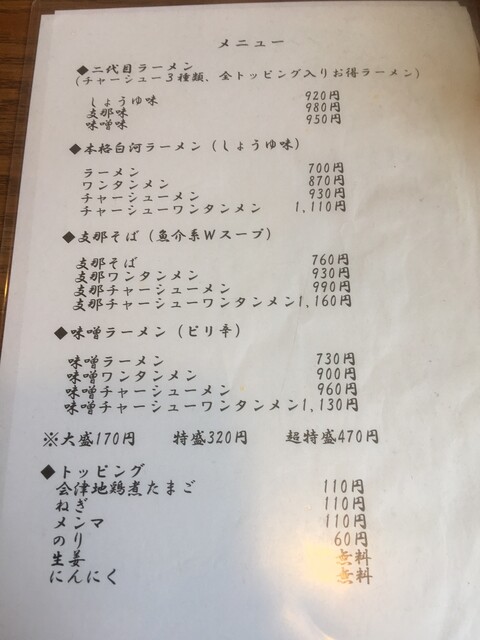 メニュー
◆二代目ラーメン
(チャーシュー3種類、全トッピング入りお得ラーメン)
しょうゆ味 920円
支那味 980円
味噌味 950円
◆本格白河ラーメン(しょうゆ味)
ラーメン 700円
ワンタンメン 870円
チャーシューメン 930円
チャーシューワンタンメン 1,110円
◆支那そば(魚介系Wスープ)
支那そば 760円
支那ワンタンメン 930円
支那チャーシューメン 990円
支那チャーシューワンタンメン1,160円
◆味噌ラーメン(ピリ辛)
味噌ラーメン 730円
味噌ワンタンメン 900円
味噌チャーシューメン 960円
味噌チャーシューワンタンメン1,130円
※大盛170円 特盛320円 超特盛470円
◆トッピング
会津地鶏煮たまご 110円
ねぎ 110円
メンマ 110円
のり 60円
生姜 無料
にんにく 無料